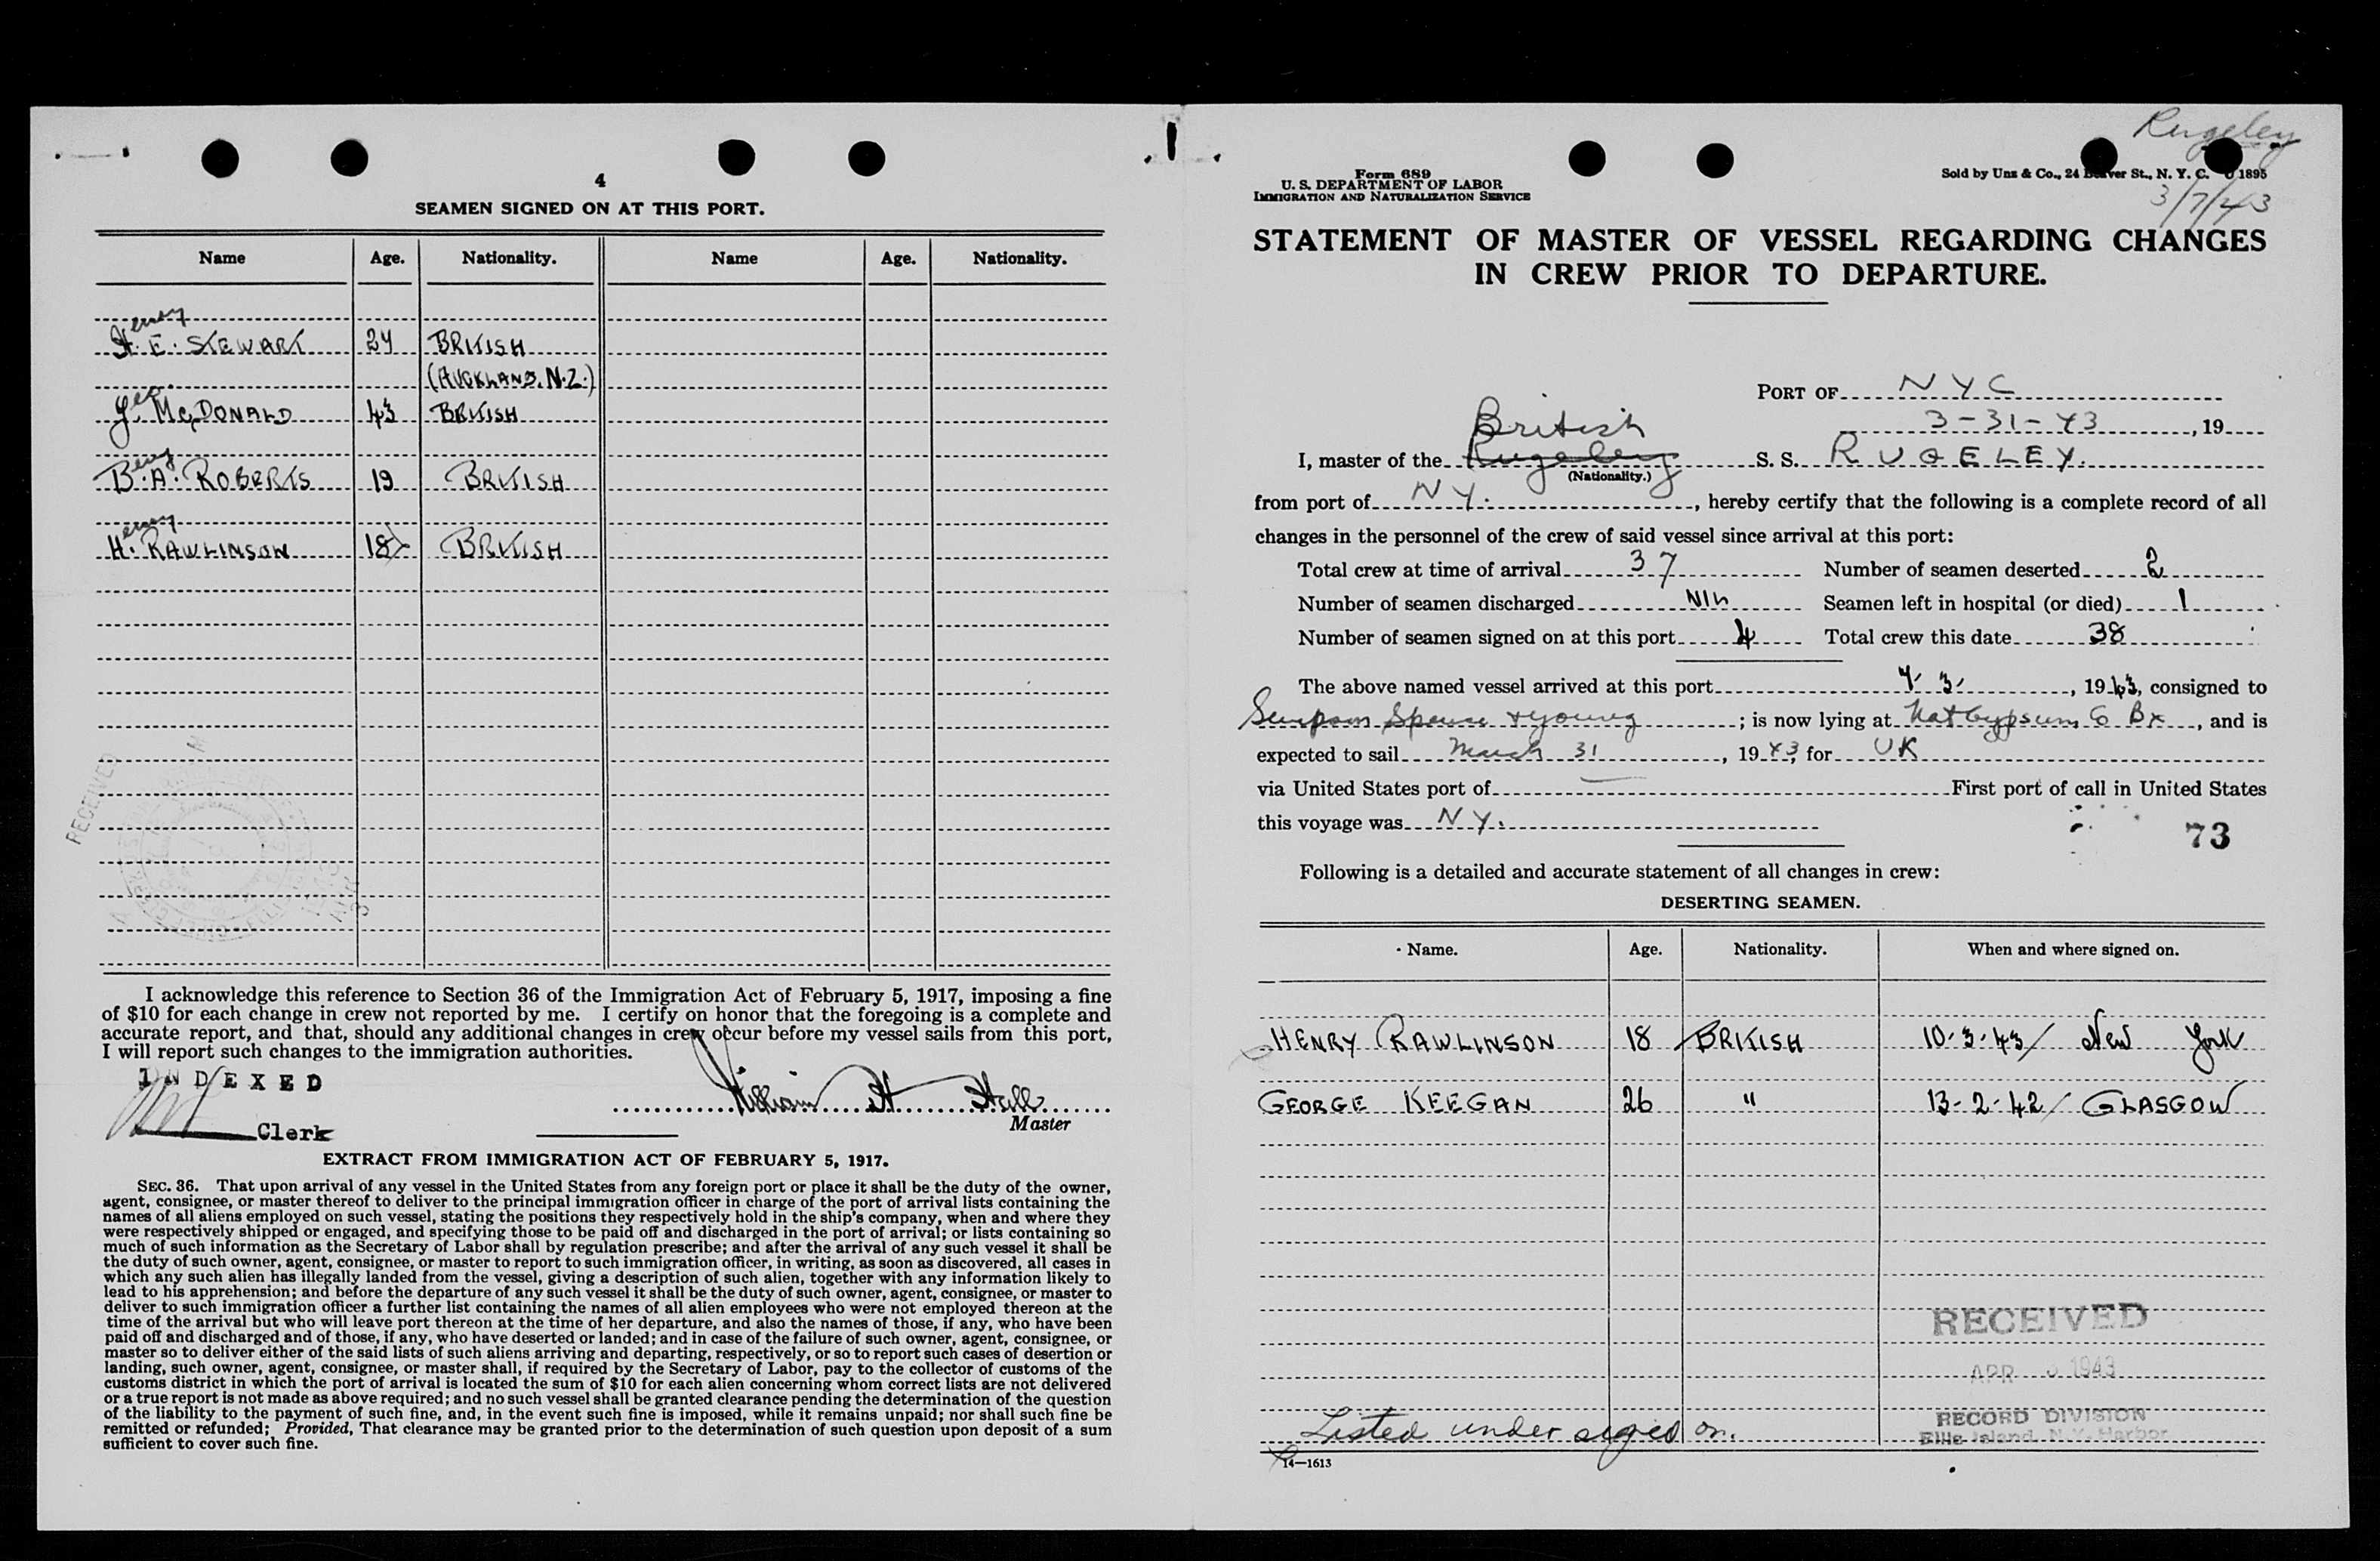 4
SEAMEN SIGNED ON AT THIS PORT.
Name Age. Nationality. Name Age. Nationality.
Henry
H. E. STEWART 24 BRITISH
(AUCKLAND. N.Z.)
Geo.
G. McDONALD 43 BRITISH
Beny
B. A. ROBERTS 19 BRITISH
Henry
H. RAWLINSON 18 BRITISH
RECEIVED
I acknowledge this reference to Section 36 of the Immigration Act of February 5, 1917, imposing a fine
of $10 for each change in crew not reported by me. I certify on honor that the foregoing is a complete and
accurate report, and that, should any additional changes in crew occur before my vessel sails from this port,
I will report such changes to the immigration authorities.
INDEXED
William H Hall
Master
Clerk
EXTRACT FROM IMMIGRATION ACT OF FEBRUARY 5, 1917.
SEC. 36. That upon arrival of any vessel in the United States from any foreign port or place it shall be the duty of the owner,
agent, consignee, or master thereof to deliver to the principal immigration officer in charge of the port of arrival lists containing the
names of all aliens employed on such vessel, stating the positions they respectively hold in the ship's company, when and where they
were respectively shipped or engaged, and specifying those to be paid off and discharged in the port of arrival; or lists containing so
much of such information as the Secretary of Labor shall by regulation prescribe; and after the arrival of any such vessel it shall be
the duty of such owner, agent, consignee, or master to report to such immigration officer, in writing, as soon as discovered, all cases in
which any such alien has illegally landed from the vessel, giving a description of such alien, together with any information likely to
lead to his apprehension; and before the departure of any such vessel it shall be the duty of such owner, agent, consignee, or master to
deliver to such immigration officer a further list containing the names of all alien employees who were not employed thereon at the
time of the arrival but who will leave port thereon at the time of her departure, and also the names of those, if any, who have been
paid off and discharged and of those, if any, who have deserted or landed; and in case of the failure of such owner, agent, consignee, or
master so to deliver either of the said lists of such aliens arriving and departing, respectively, or so to report such cases of desertion or
landing, such owner, agent, consignee, or master shall, if required by the Secretary of Labor, pay to the collector of customs of the
customs district in which the port of arrival is located the sum of $10 for each alien concerning whom correct lists are not delivered
or a true report is not made as above required; and no such vessel shall be granted clearance pending the determination of the question
of the liability to the payment of such fine, and, in the event such fine is imposed, while it remains unpaid; nor shall such fine be
remitted or refunded; Provided, That clearance may be granted prior to the determination of such question upon deposit of a sum
sufficient to cover such fine.
Rugeley
Form 689
U. S. DEPARTMENT OF LABOR
IMMIGRATION AND NATURALIZATION SERVICE
Sold by Unz & Co., 24 Beaver St., N. Y. C. 1895
3/7/43
STATEMENT OF MASTER OF VESSEL REGARDING CHANGES
IN CREW PRIOR TO DEPARTURE.
PORT OF NYC
3-31-43, 19
British
I, master of the Rugeley S. S. RUGELEY.
(Nationality.)
from port of NY., hereby certify that the following is a complete record of all
changes in the personnel of the crew of said vessel since arrival at this port:
Total crew at time of arrival 37 Number of seamen deserted 2
Number of seamen discharged NIL Seamen left in hospital (or died) 1
Number of seamen signed on at this port 4 Total crew this date 38
The above named vessel arrived at this port 7. 3., 1943, consigned to
Simpson Spence & Young; is now lying at Nat Gypsum Co Bx, and is
expected to sail March 31, 1943, for UK
via United States port of — First port of call in United States
this voyage was NY.
73
Following is a detailed and accurate statement of all changes in crew:
DESERTING SEAMEN.
Name. Age. Nationality. When and where signed on.
HENRY RAWLINSON 18 BRITISH 10-3-43/ New York
GEORGE KEEGAN 26 " 13-2-42/ GLASGOW
RECEIVED
APR 1943
RECORD DIVISION
Ellis Island, N.Y. Harbor
Listed under signed on.
14—1613